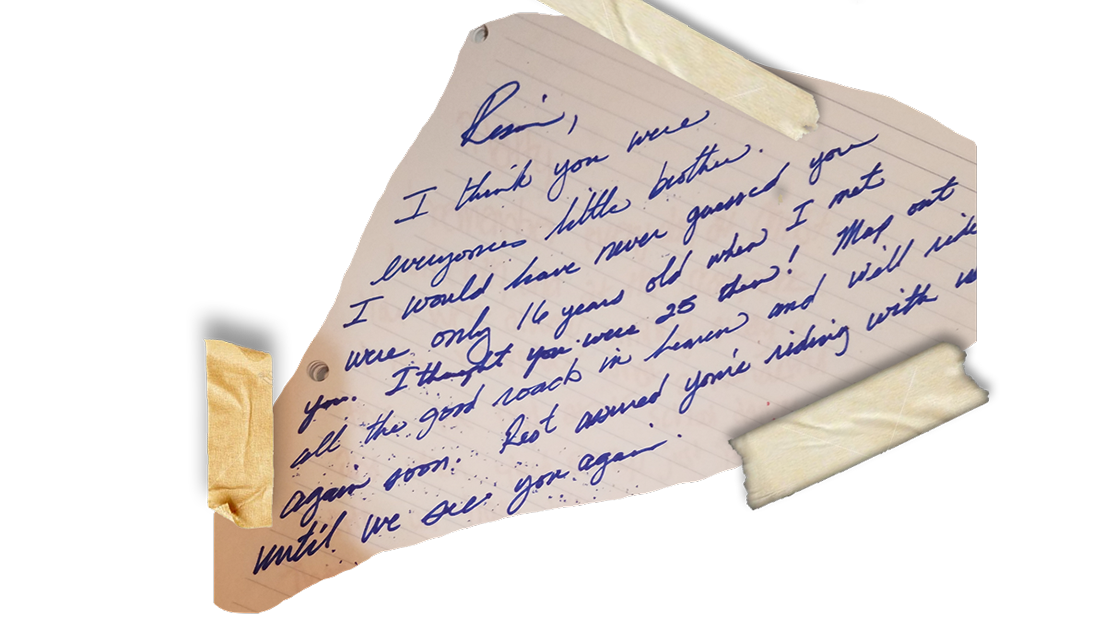 I think you were
everyones little brother.
I would have never guessed you
were only 16 years old when I met
you. I thought you were 25 then! Map out
all the good roads in heaven and we'll ride
again soon. Rest assured you're riding with us
until we see you again.